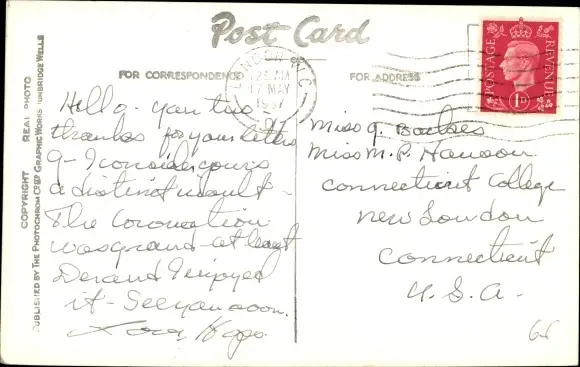 Post Card
FOR CORRESPONDENCE
FOR ADDRESS
LONDON W.C.
12 AM
17 MAY
1937
POSTAGE
REVENUE
1D
COPYRIGHT REAL PHOTO
PUBLISHED BY THE PHOTOCHROM CO LTD GRAPHIC WORKS TUNBRIDGE WELLS
Hello - you two
thanks for your letters
I consider yours
a distinct insult -
The Coronation
was grand - at least
and I enjoyed
it - See you soon.
Miss J.
Miss M. P. Hanson
Connecticut College
New London
Connecticut
U.S.A.